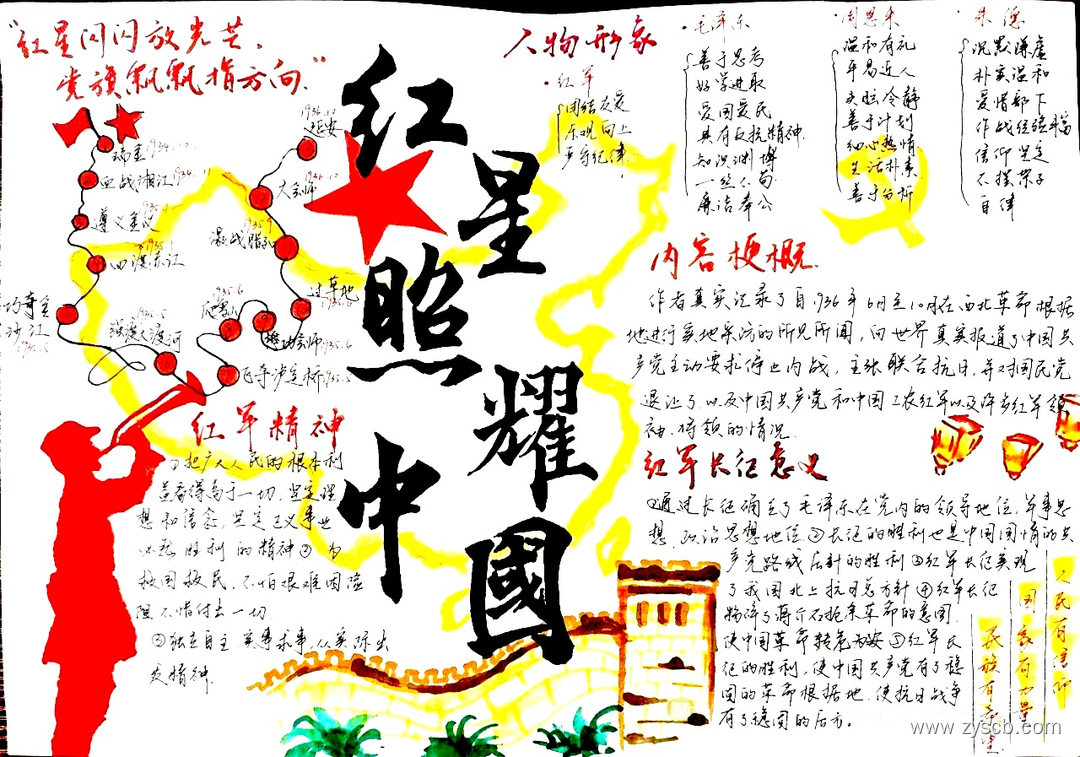 "红星闪闪放光芒、
党旗飘飘指方向."
红星照耀中國
人物形象
·红军
团结友爱
乐观向上
严守纪律
·毛泽东
善于思考
好学进取
爱国爱民
具有反抗精神
知识渊博
一丝不苟
廉洁奉公
·周恩来
温和有礼
平易近人
头脑冷静
善于计划
细心热情
生活朴素
善于分析
·朱德
沉默谦虚
朴实温和
爱惜部下
作战经验丰富
信仰坚定
不摆架子
自律
瑞金 1934.10
血战湘江 1934.11
遵义会议 1935.1
四渡赤江
巧夺金沙江 1935.5
强渡大渡河 1935.5
飞夺泸定桥 1935.5
爬雪山 1935.6
懋功会师 1935.6
过草地
激战腊子口 1935.9
大会师 1936.10
延安 1936.12
内容梗概
作者真实记录了自1936年6月至10月在西北革命根据
地进行实地采访的所见所闻，向世界真实报道了中国共
产党主动要求停止内战，主张联合抗日，并对国民党
退让了，以及中国共产党和中国工农红军以及许多红军领
袖、将领的情况.
红军精神
①把广人人民的根本利
益看得高于一切，坚定理
想和信念，坚定正义事业
必然胜利的精神②为
救国救民，不怕艰难困险
阻不惜付出一切
③独立自主 实事求事，从实际出
发精神.
红军长征意义
①通过长征确立了毛泽东在党内的领导地位，军事思
想，政治思想地位②长征的胜利也是中国国情的共
产党路线方针的胜利③红军长征实现
了我国北上抗日总方针④红军长征
粉碎了蒋介石扼杀革命的意图，
使中国革命转危为安⑤红军长
征的胜利，使中国共产党有了稳
固的革命根据地，使抗日战争
有了稳固的后方。
人民有信仰
国家有力量
民族有希望
www.zyscb.com